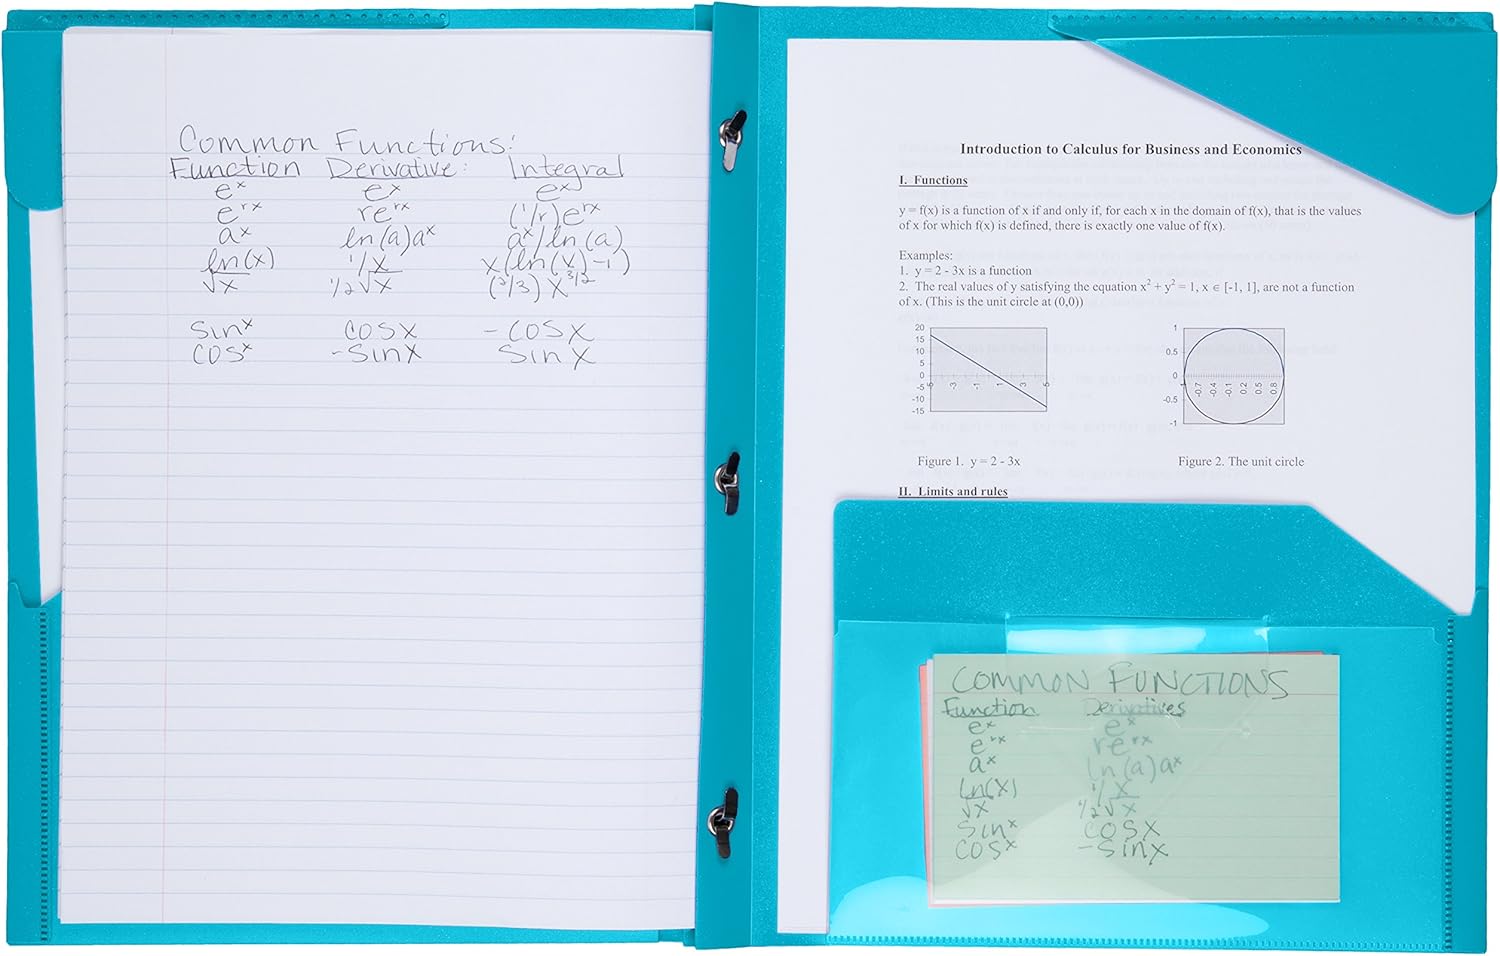 Common Functions:
Function Derivative: Integral
eˣ eˣ eˣ
eʳˣ reʳˣ (1/r)eʳˣ
aˣ ln(a)aˣ aˣ/ln(a)
ln(x) 1/x x(ln(x)-1)
√x 1/2√x (2/3)x^3/2
sinˣ cosx -cosx
cosˣ -sinx sinx
Introduction to Calculus for Business and Economics
I. Functions
y = f(x) is a function of x if and only if, for each x in the domain of f(x), that is the values
of x for which f(x) is defined, there is exactly one value of f(x).
Examples:
1. y = 2 - 3x is a function
2. The real values of y satisfying the equation x² + y² = 1, x ∈ [-1, 1], are not a function
of x. (This is the unit circle at (0,0))
20
15
10
5
0
-5
-10
-15
-5 -3 -1 1 3 5
1
0.5
0
-0.5
-1
-0.7 -0.4 -0.1 0.2 0.5 0.8
Figure 1. y = 2 - 3x
Figure 2. The unit circle
II. Limits and rules
COMMON FUNCTIONS
Function Derivatives
eˣ eˣ
eʳˣ reʳˣ
aˣ ln(a)aˣ
ln(x) 1/x
√x 1/2√x
sinˣ cosx
cosˣ -sinx